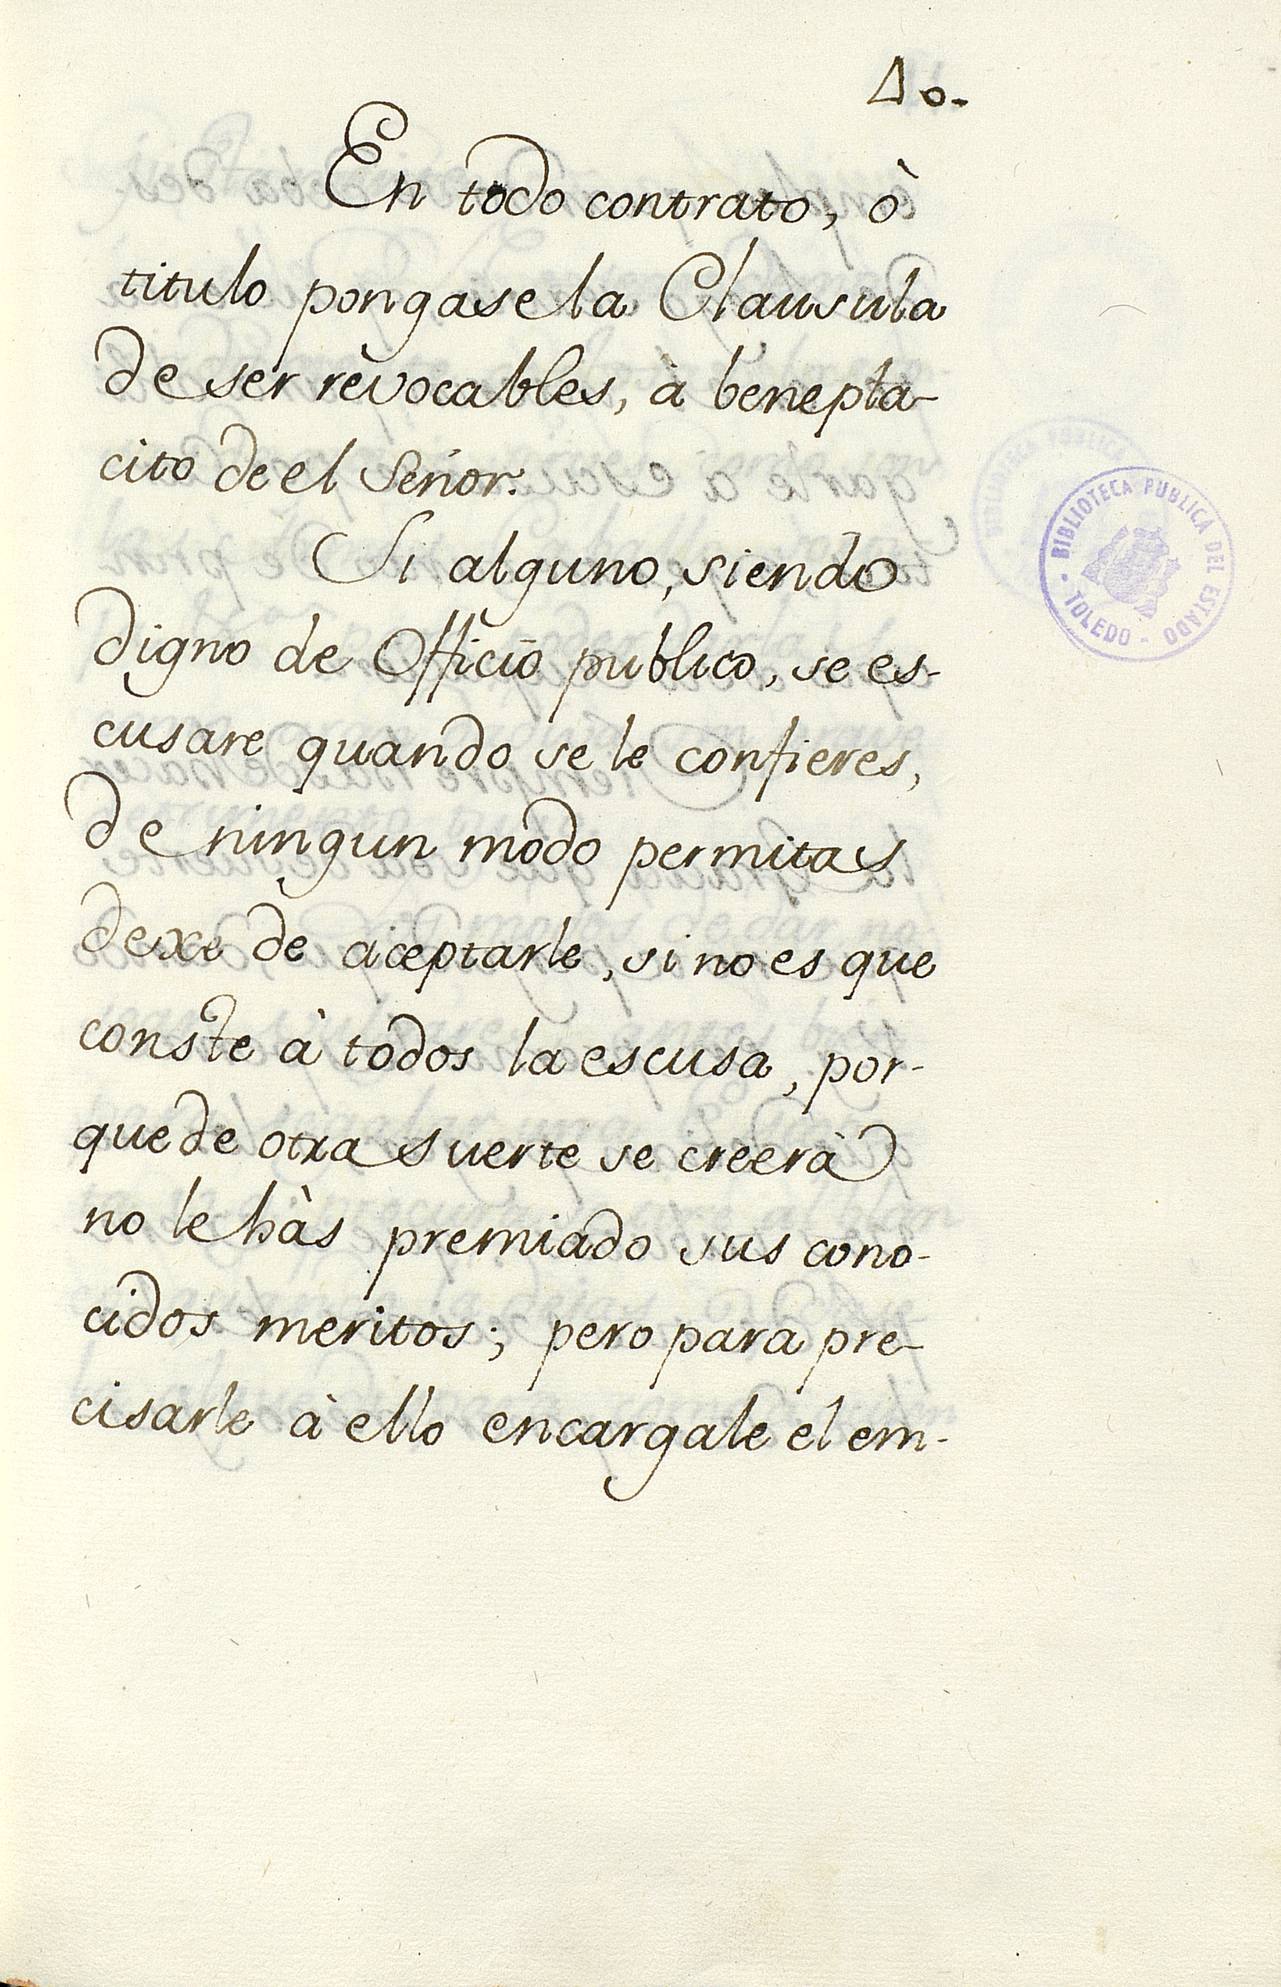 40.
En todo contrato, ò
titulo pongase la Clausula
de ser revocables, à benepla-
cito de el Señor.
Si alguno, siendo
digno de Officio publico, se es-
cusare quando se le confieres,
de ningun modo permitas
dexe de aceptarle, si no es que
conste à todos la escusa, por-
que de otra suerte se creerà
no le hàs premiado sus cono-
cidos meritos; pero para pre-
cisarle à ello encargale el em-
BIBLIOTECA PUBLICA DEL ESTADO
- TOLEDO -